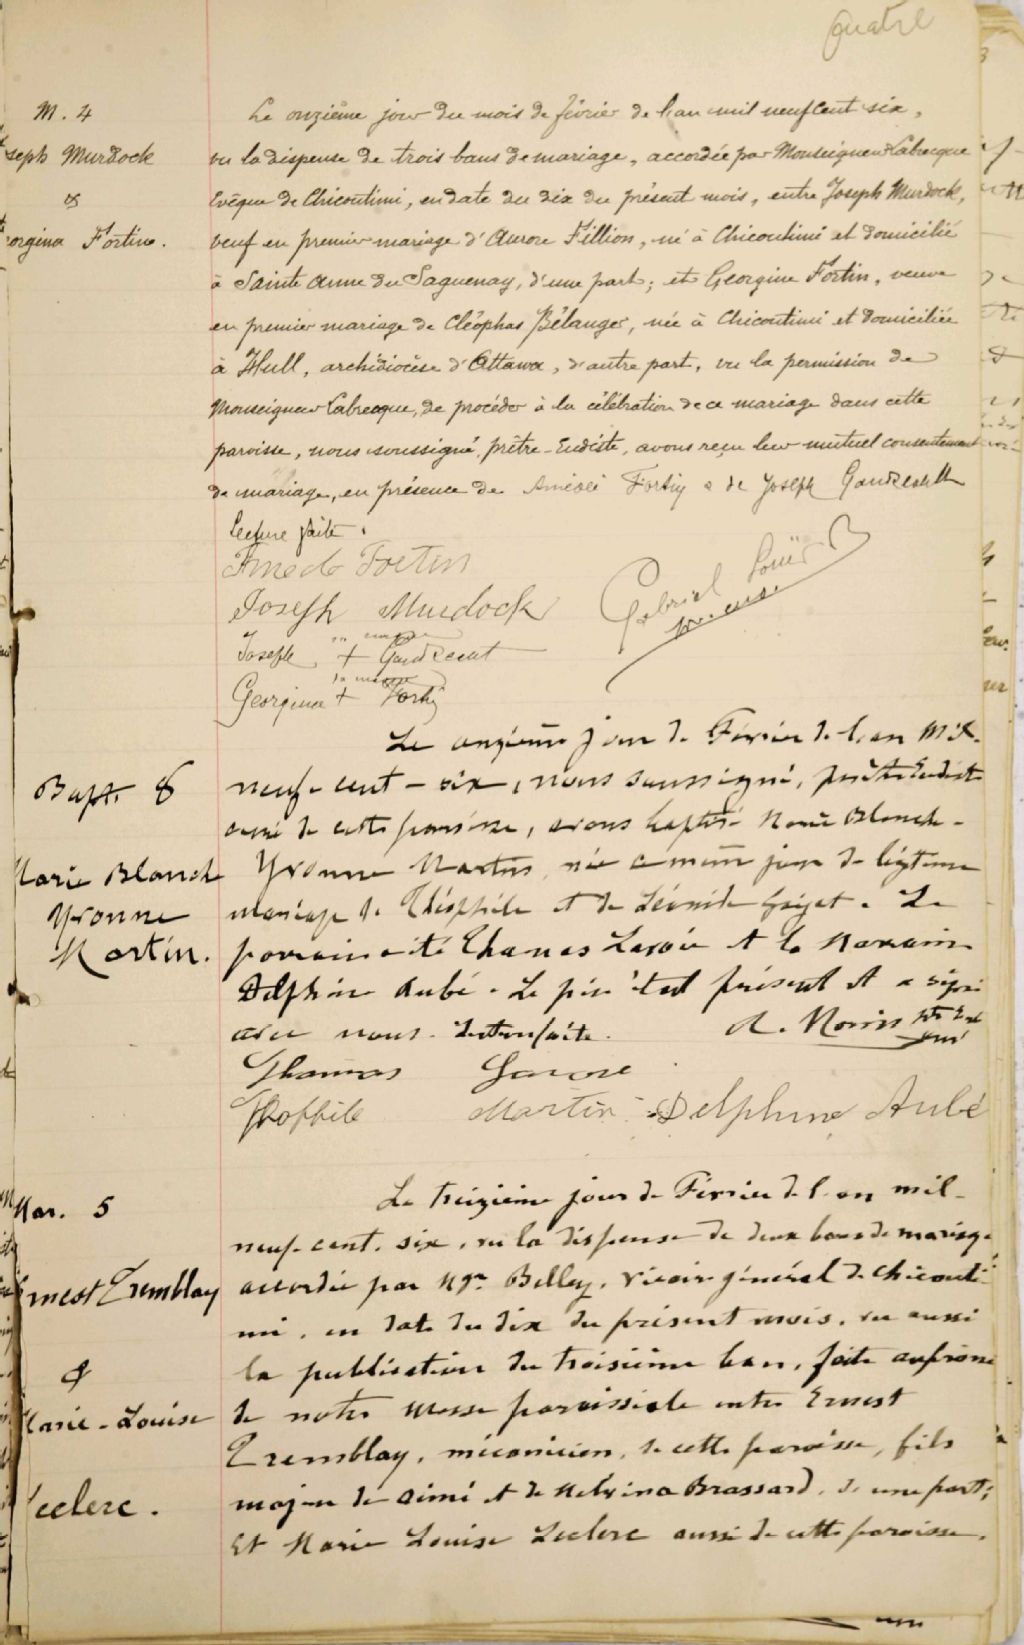 quatre
M. 4
seph Murdock
&
orgina Fortin.
Le onzième jour du mois de février de l'an mil neuf cent six,
vu la dispense de trois bans de mariage, accordée par Monseigneur Labrecque
Evêque de Chicoutimi, en date du dix du présent mois, entre Joseph Murdock,
veuf en premier mariage d'Aurore Fillion, né à Chicoutimi et domicilié
à Sainte Anne du Saguenay, d'une part; et Georgine Fortin, veuve
en premier mariage de Cléophas Bélanger, née à Chicoutimi et domiciliée
à Hull, archidiocèse d'Ottawa, d'autre part, vu la permission de
Monseigneur Labrecque, de procéder à la célébration de ce mariage dans cette
paroisse, nous soussigné, prêtre-Eudiste, avons reçu leur mutuel consentement
de mariage, en présence de Amédée Fortin & de Joseph Gaudreault
lecture faite.
Amedé Fortin
Joseph Murdock
Gabriel Louër
Joseph + Gaudreaut
sa marque
Georgina + Fortin
Bapt. 8
Marie Blanch
Yvonne
Martin.
Le onzième jour de Février de l'an mil
neuf-cent-six, nous soussigné, prêtre Eudiste
curé de cette paroisse, avons baptisé Marie Blanche-
Yvonne Martin, née ce même jour de légitime
mariage de Théophile et de Léonide Guyot. Le
parrain a été Thomas Lavoie et la Marraine
Delphine Aubé. Le père était présent et a signé
avec nous. Lecture faite.
A. Morin ptre Eud
curé
Thomas Lavoie
Thophile Martin Delphine Aubé
Mar. 5
rnest Tremblay
&
Marie-Louise
Leclerc.
Le treizième jour de Février de l'an mil-
neuf-cent-six, vu la dispense de deux bans de mariage
accordée par Mgr Belley, Vicaire général de Chicouti-
mi, en date du dix du présent mois, vu aussi
la publication du troisième ban, faite au prône
de notre messe paroissiale entre Ernest
Tremblay, mécanicien, de cette paroisse, fils
majeur de Aimé et de Malvina Brassard, d'une part;
Et Marie Louise Leclerc aussi de cette paroisse,